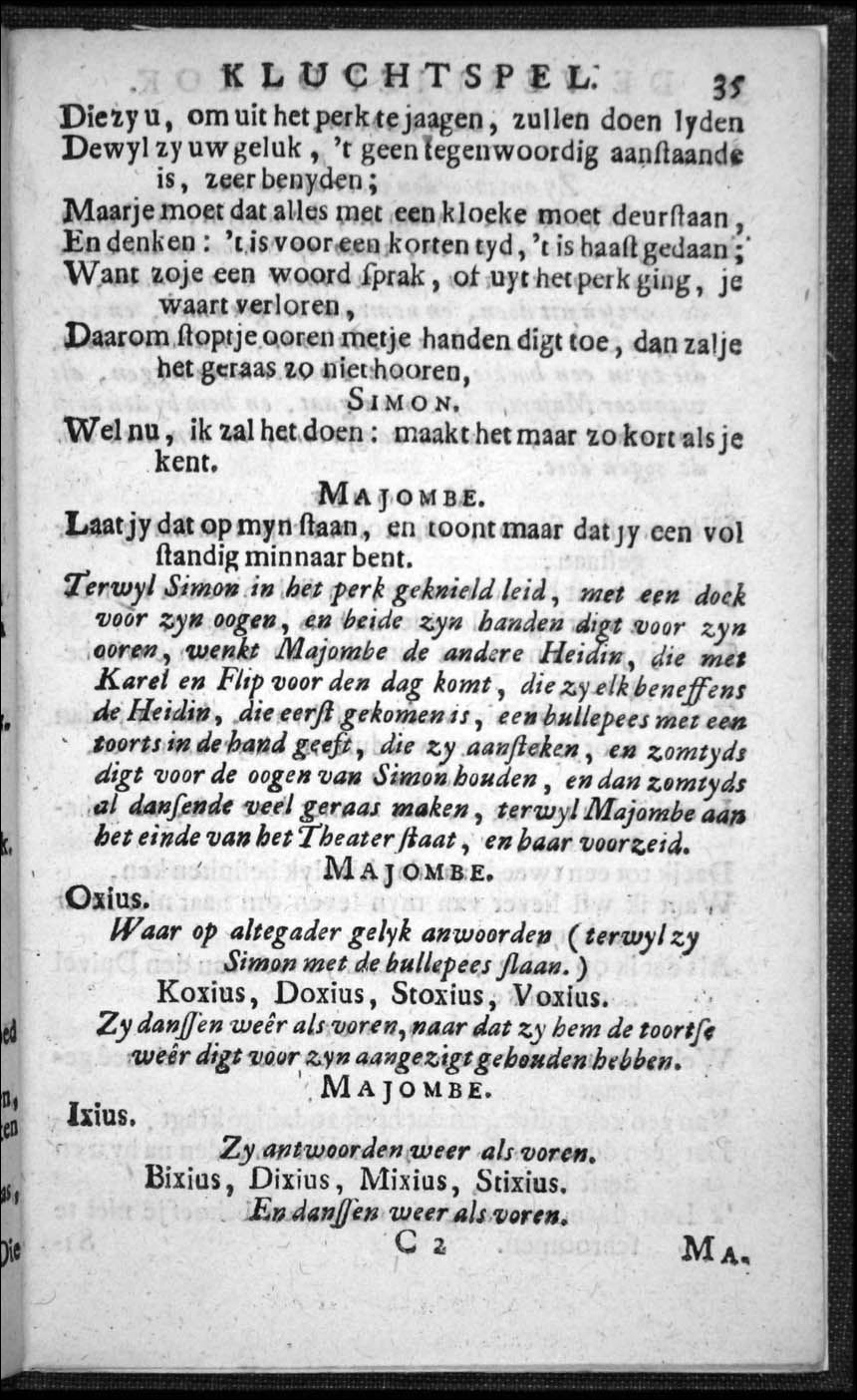 KLUCHTSPEL. 35
Die zy u, om uit het perk te jaagen, zullen doen lyden
Dewyl zy uw geluk, 't geen tegenwoordig aanſtaande
is, zeer benyden;
Maar je moet dat alles met een kloeke moet deurſtaan,
En denken: 't is voor een korten tyd, 't is haaſt gedaan;
Want zo je een woord ſprak, of uyt het perk ging, je
waart verloren,
Daarom ſtopt je ooren met je handen digt toe, dan zal je
het geraas zo niet hooren,
SIMON.
Wel nu, ik zal het doen: maakt het maar zo kort als je
kent.
MAJOMBE.
Laat jy dat op myn ſtaan, en toont maar dat jy een vol
ſtandig minnaar bent.
Terwyl Simon in het perk geknield leid, met een doek
voor zyn oogen, en beide zyn handen digt voor zyn
ooren, wenkt Majombe de andere Heidin, die met
Karel en Flip voor den dag komt, die zy elk beneffens
de Heidin, die eerſt gekomen is, een bullepees met een
toorts in de hand geeft, die zy aanſteken, en zomtyds
digt voor de oogen van Simon houden, en dan zomtyds
al danſende veel geraas maken, terwyl Majombe aan
het einde van het Theater ſtaat, en haar voorzeid.
MAJOMBE.
Oxius.
Waar op altegader gelyk anwoorden (terwyl zy
Simon met de bullepees ſlaan.)
Koxius, Doxius, Stoxius, Voxius.
Zy danſſen weêr als voren, naar dat zy hem de toortſe
weêr digt voor zyn aangezigt gehouden hebben.
MAJOMBE.
Ixius.
Zy antwoorden weer als voren.
Bixius, Dixius, Mixius, Stixius.
En danſſen weer als voren.
C 2 MA.